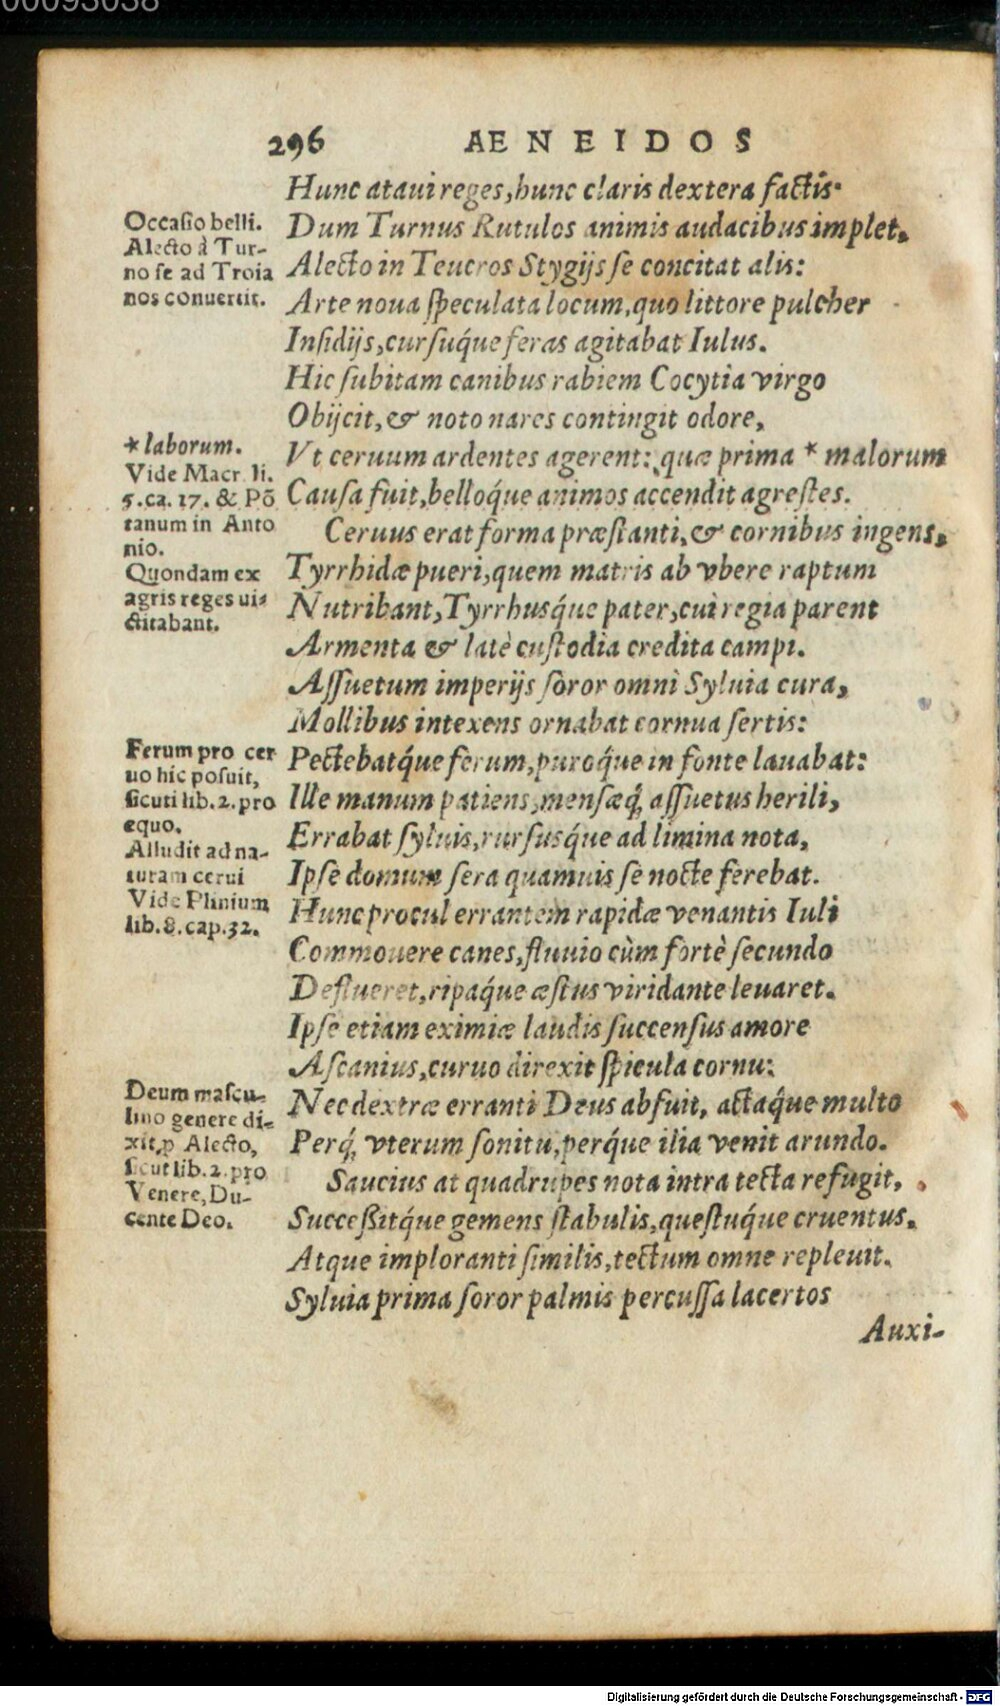 00093038
296 AENEIDOS
Hunc ataui reges, hunc claris dextera factis.
Occasio belli.
Alecto à Tur-
no se ad Troia
nos conuertit.
Dum Turnus Rutulos animis audacibus implet,
Alecto in Teucros Stygijs se concitat alis:
Arte noua speculata locum, quo littore pulcher
Insidijs, cursuq́ue feras agitabat Iulus.
Hic subitam canibus rabiem Cocytia virgo
Obijcit, & noto nares contingit odore,
* laborum.
Vide Macr. li.
5. ca. 17. & Põ
tanum in Anto
nio.
Quondam ex
agris reges ui-
ctitabant.
Vt ceruum ardentes agerent: quæ prima * malorum
Causa fuit, belloq́ue animos accendit agrestes.
Ceruus erat forma præstanti, & cornibus ingens,
Tyrrhidæ pueri, quem matris ab vbere raptum
Nutribant, Tyrrhusq́ue pater, cui regia parent
Armenta & latè custodia credita campi.
Assuetum imperijs soror omni Syluia cura,
Mollibus intexens ornabat cornua sertis:
Ferum pro cer
uo hic posuit,
sicuti lib. 2. pro
equo.
Alludit ad na-
turam cerui
Vide Plinium
lib. 8. cap. 32.
Pectebatq́ue ferum, puroq́ue in fonte lauabat:
Ille manum patiens, mensæq́; assuetus herili,
Errabat syluis, rursusq́ue ad limina nota,
Ipse domum sera quamuis se nocte ferebat.
Hunc procul errantem rapidæ venantis Iuli
Commouere canes, fluuio cùm fortè secundo
Deflueret, ripaq́ue æstus viridante leuaret.
Ipse etiam eximiæ laudis succensus amore
Ascanius, curuo direxit spicula cornu:
Deum mascu-
lino genere di-
xit, ꝓ Alecto,
sicut lib. 2. pro
Venere, Du-
cente Deo.
Nec dextræ erranti Deus abfuit, actaq́ue multo
Perq́; vterum sonitu, perq́ue ilia venit arundo.
Saucius at quadrupes nota intra tecta refugit,
Successitq́ue gemens stabulis, questuq́ue cruentus,
Atque imploranti similis, tectum omne repleuit.
Syluia prima soror palmis percussa lacertos
Auxi-
Digitalisierung gefördert durch die Deutsche Forschungsgemeinschaft - DFG